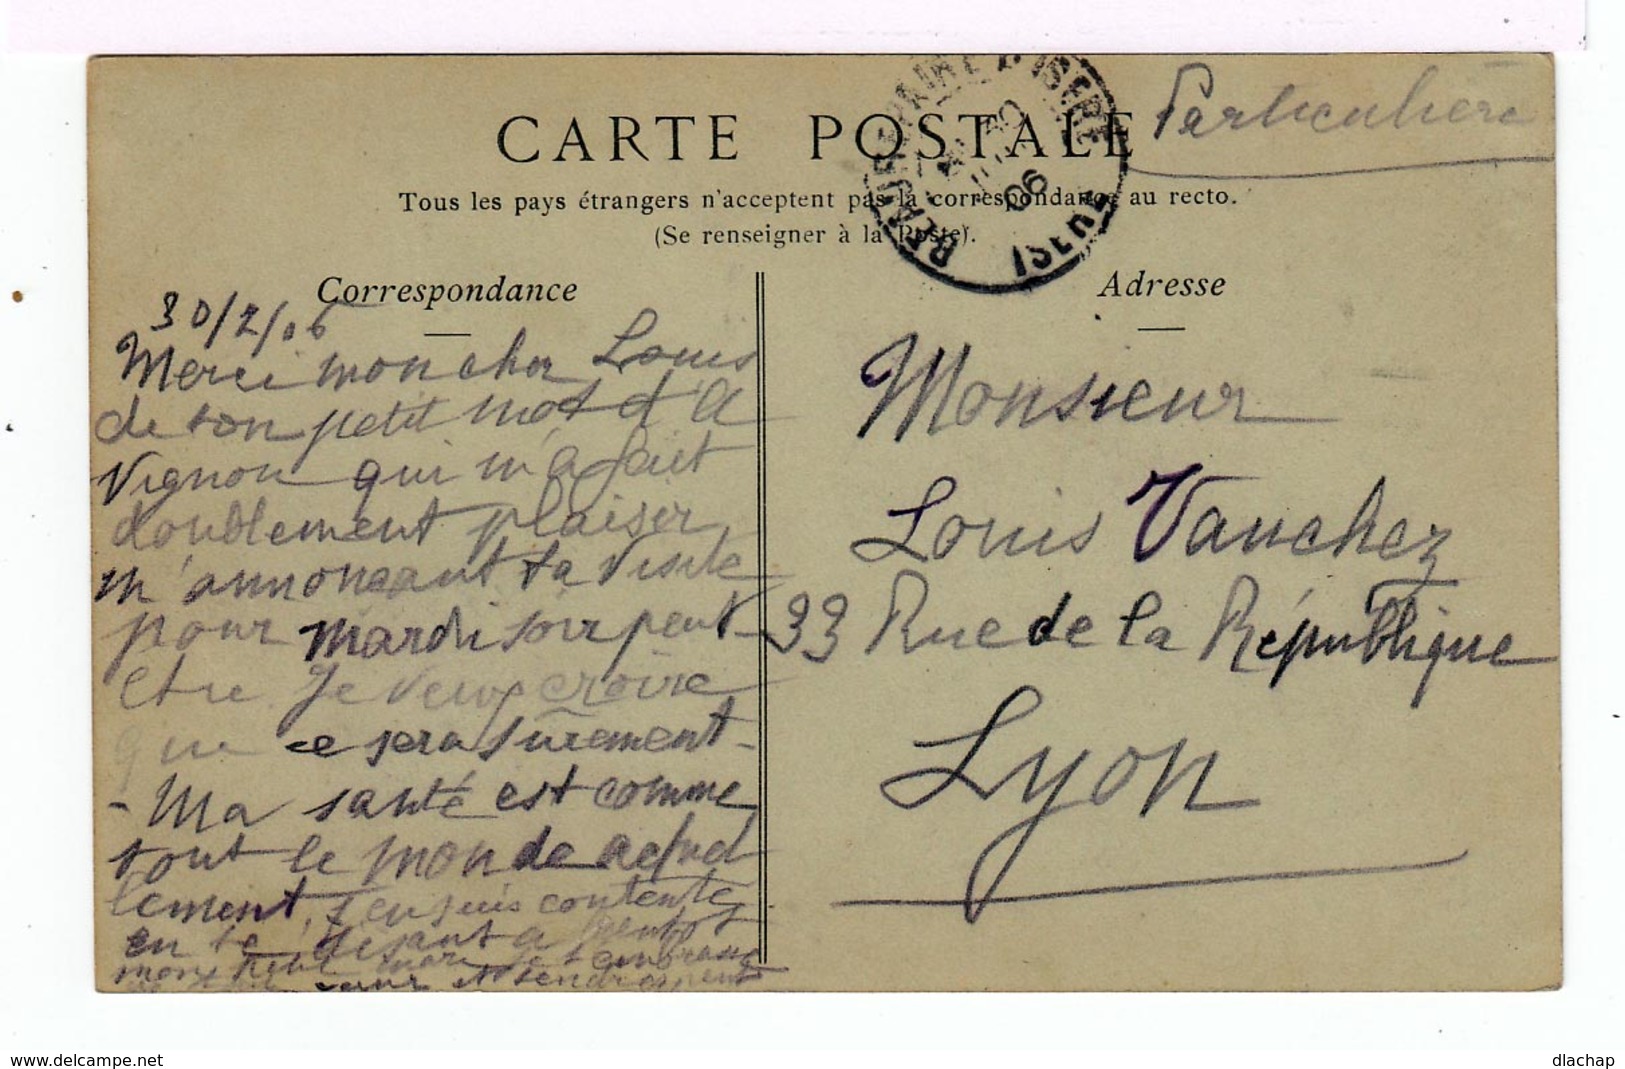 CARTE POSTALE
Particulière
Tous les pays étrangers n'acceptent pas la correspondance au recto.
(Se renseigner à la Poste).
06
ISERE
Correspondance
30/7/06
Merci mon cher Louis
de ton petit mot d'A
vignon qui m'a fait
doublement plaisir
m'annonçant ta visite
pour mardi soir peut
etre Je veux croire
que ce sera surement
- Ma santé est comme
tout le monde actuel
lement, j'en suis contente
en te disant a bientot
mon petit mari je t'embrasse
coeur et tendrement
Adresse
Monsieur
Louis Vauchez
33 Rue de la République
Lyon
www.delcampe.net
dlachap